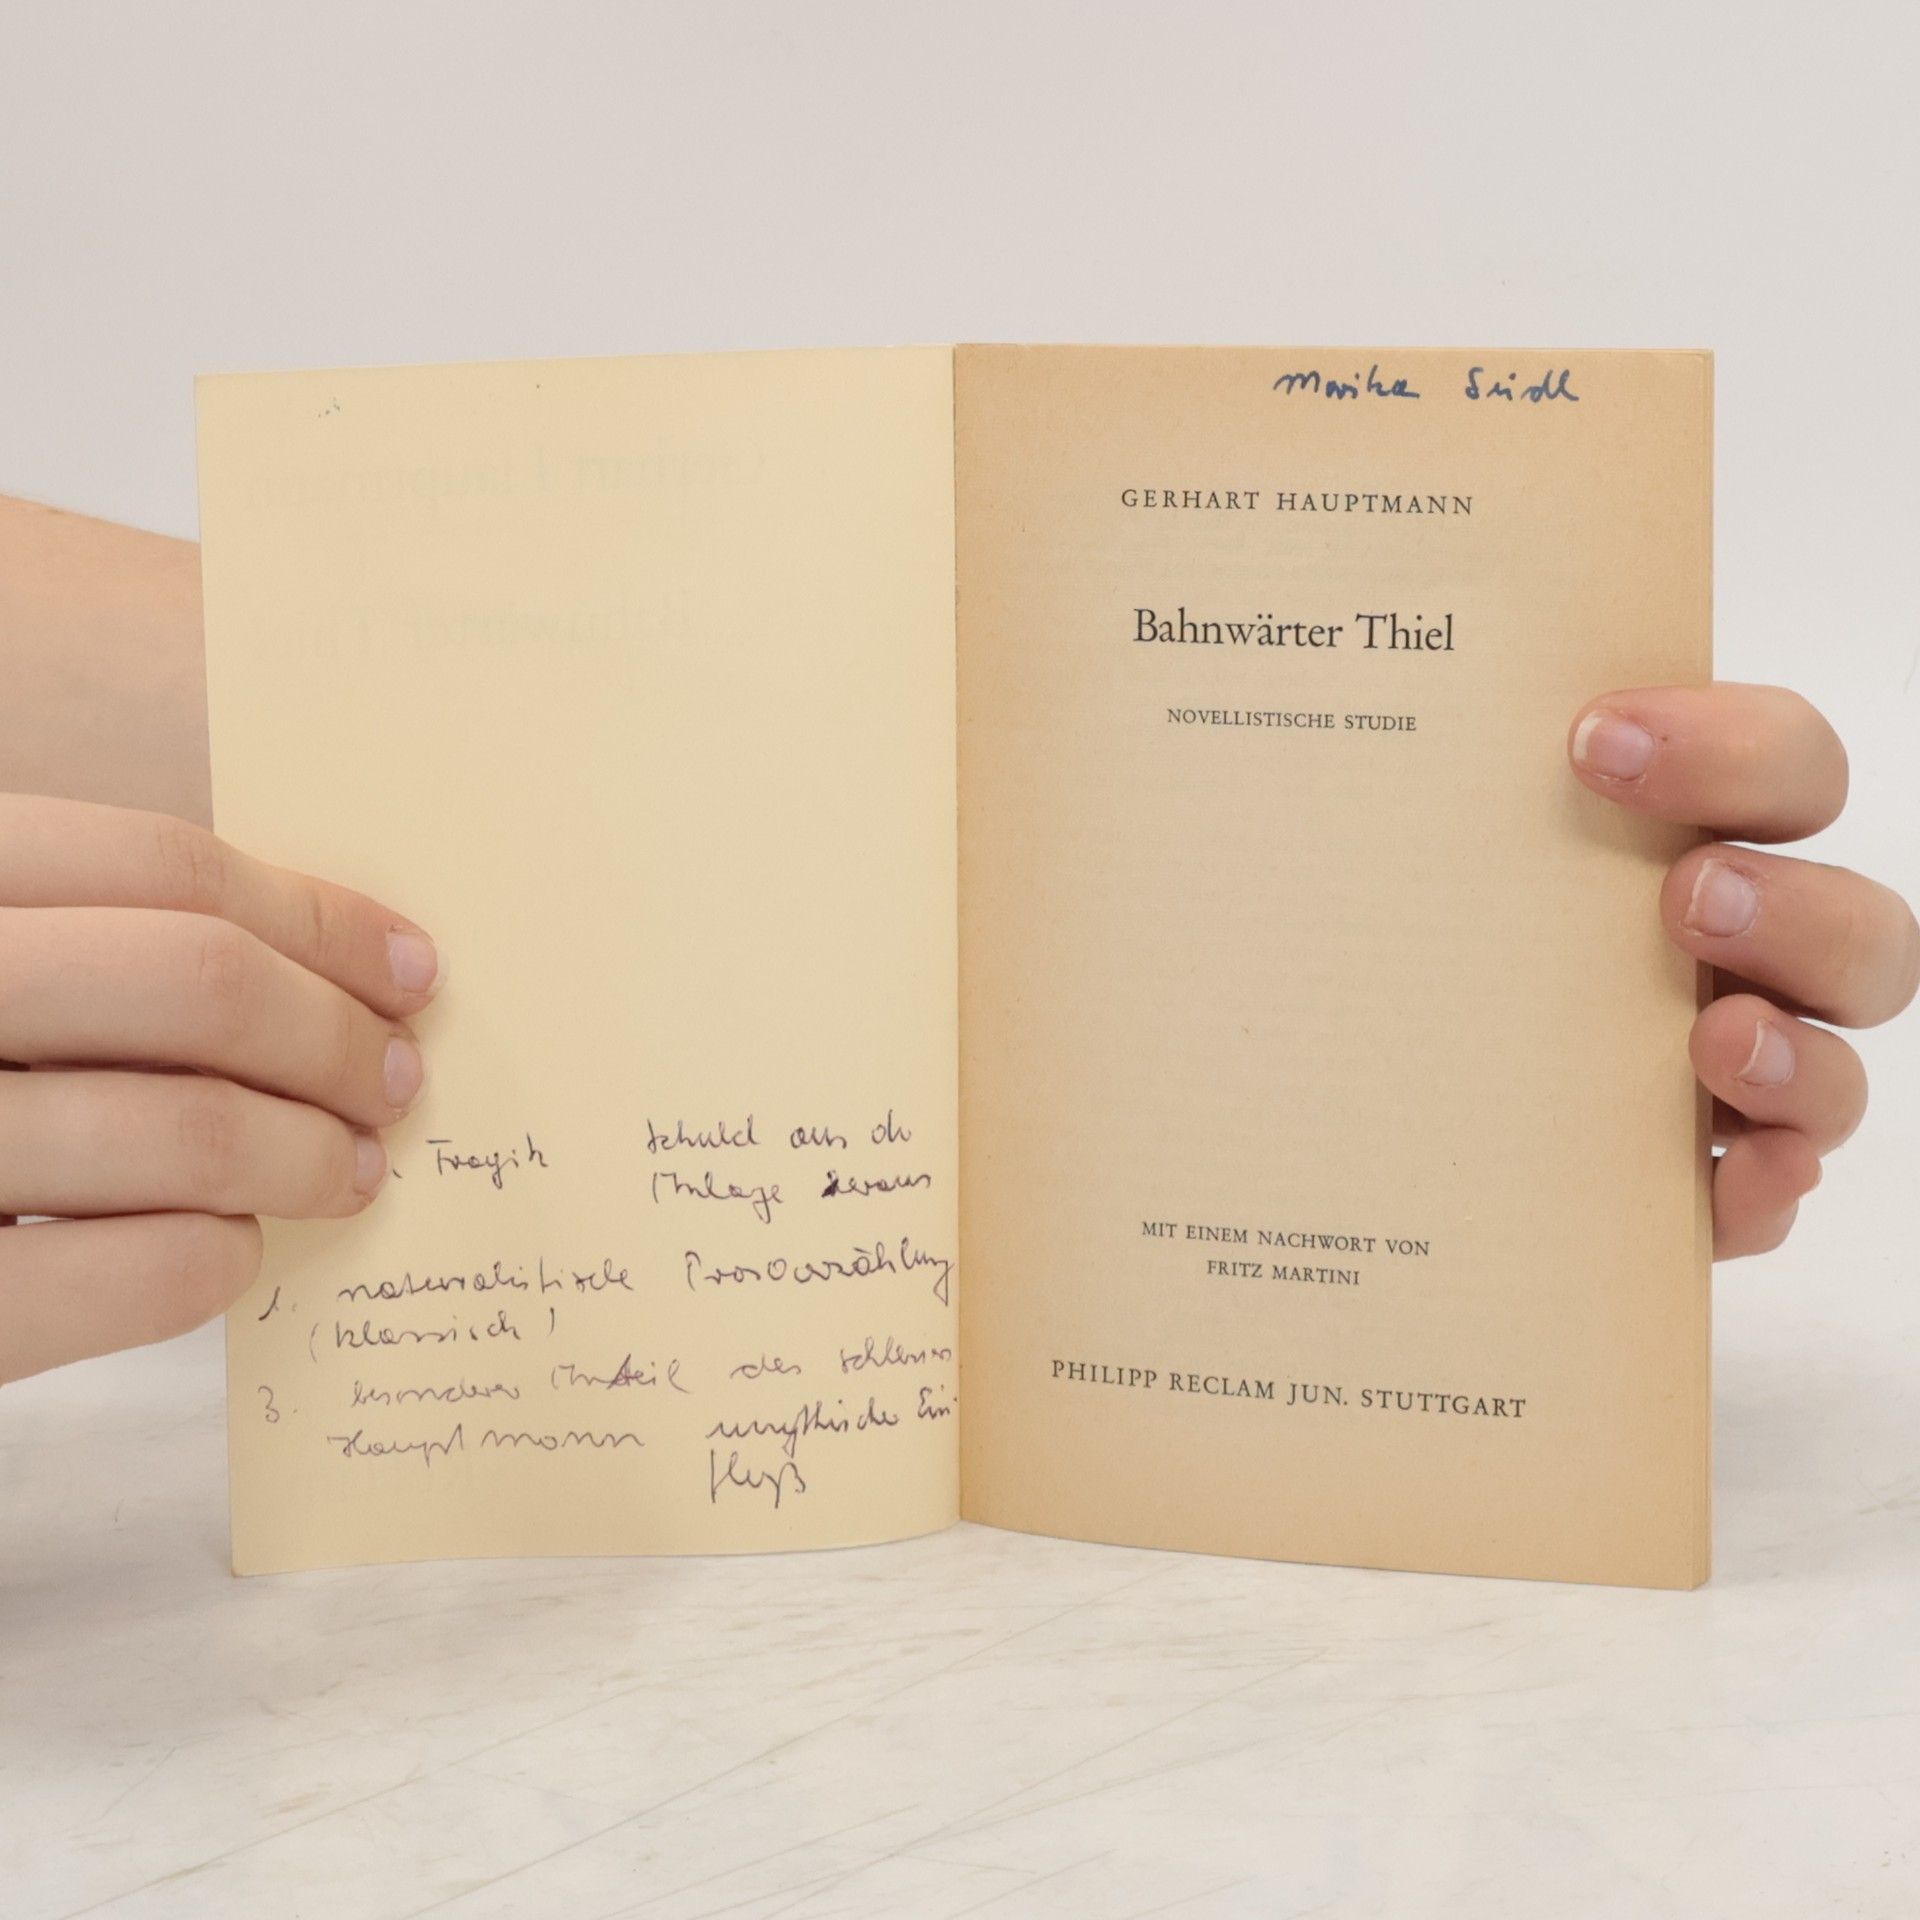 Tragik Schuld aus der
Anlage heraus
1. naturalistische Prosaerzählung
(klassisch)
3. besonderer Anteil des
Hauptmann mythischer Ein-
fluß
Monika Seidl
GERHART HAUPTMANN
Bahnwärter Thiel
NOVELLISTISCHE STUDIE
MIT EINEM NACHWORT VON
FRITZ MARTINI
PHILIPP RECLAM JUN. STUTTGART